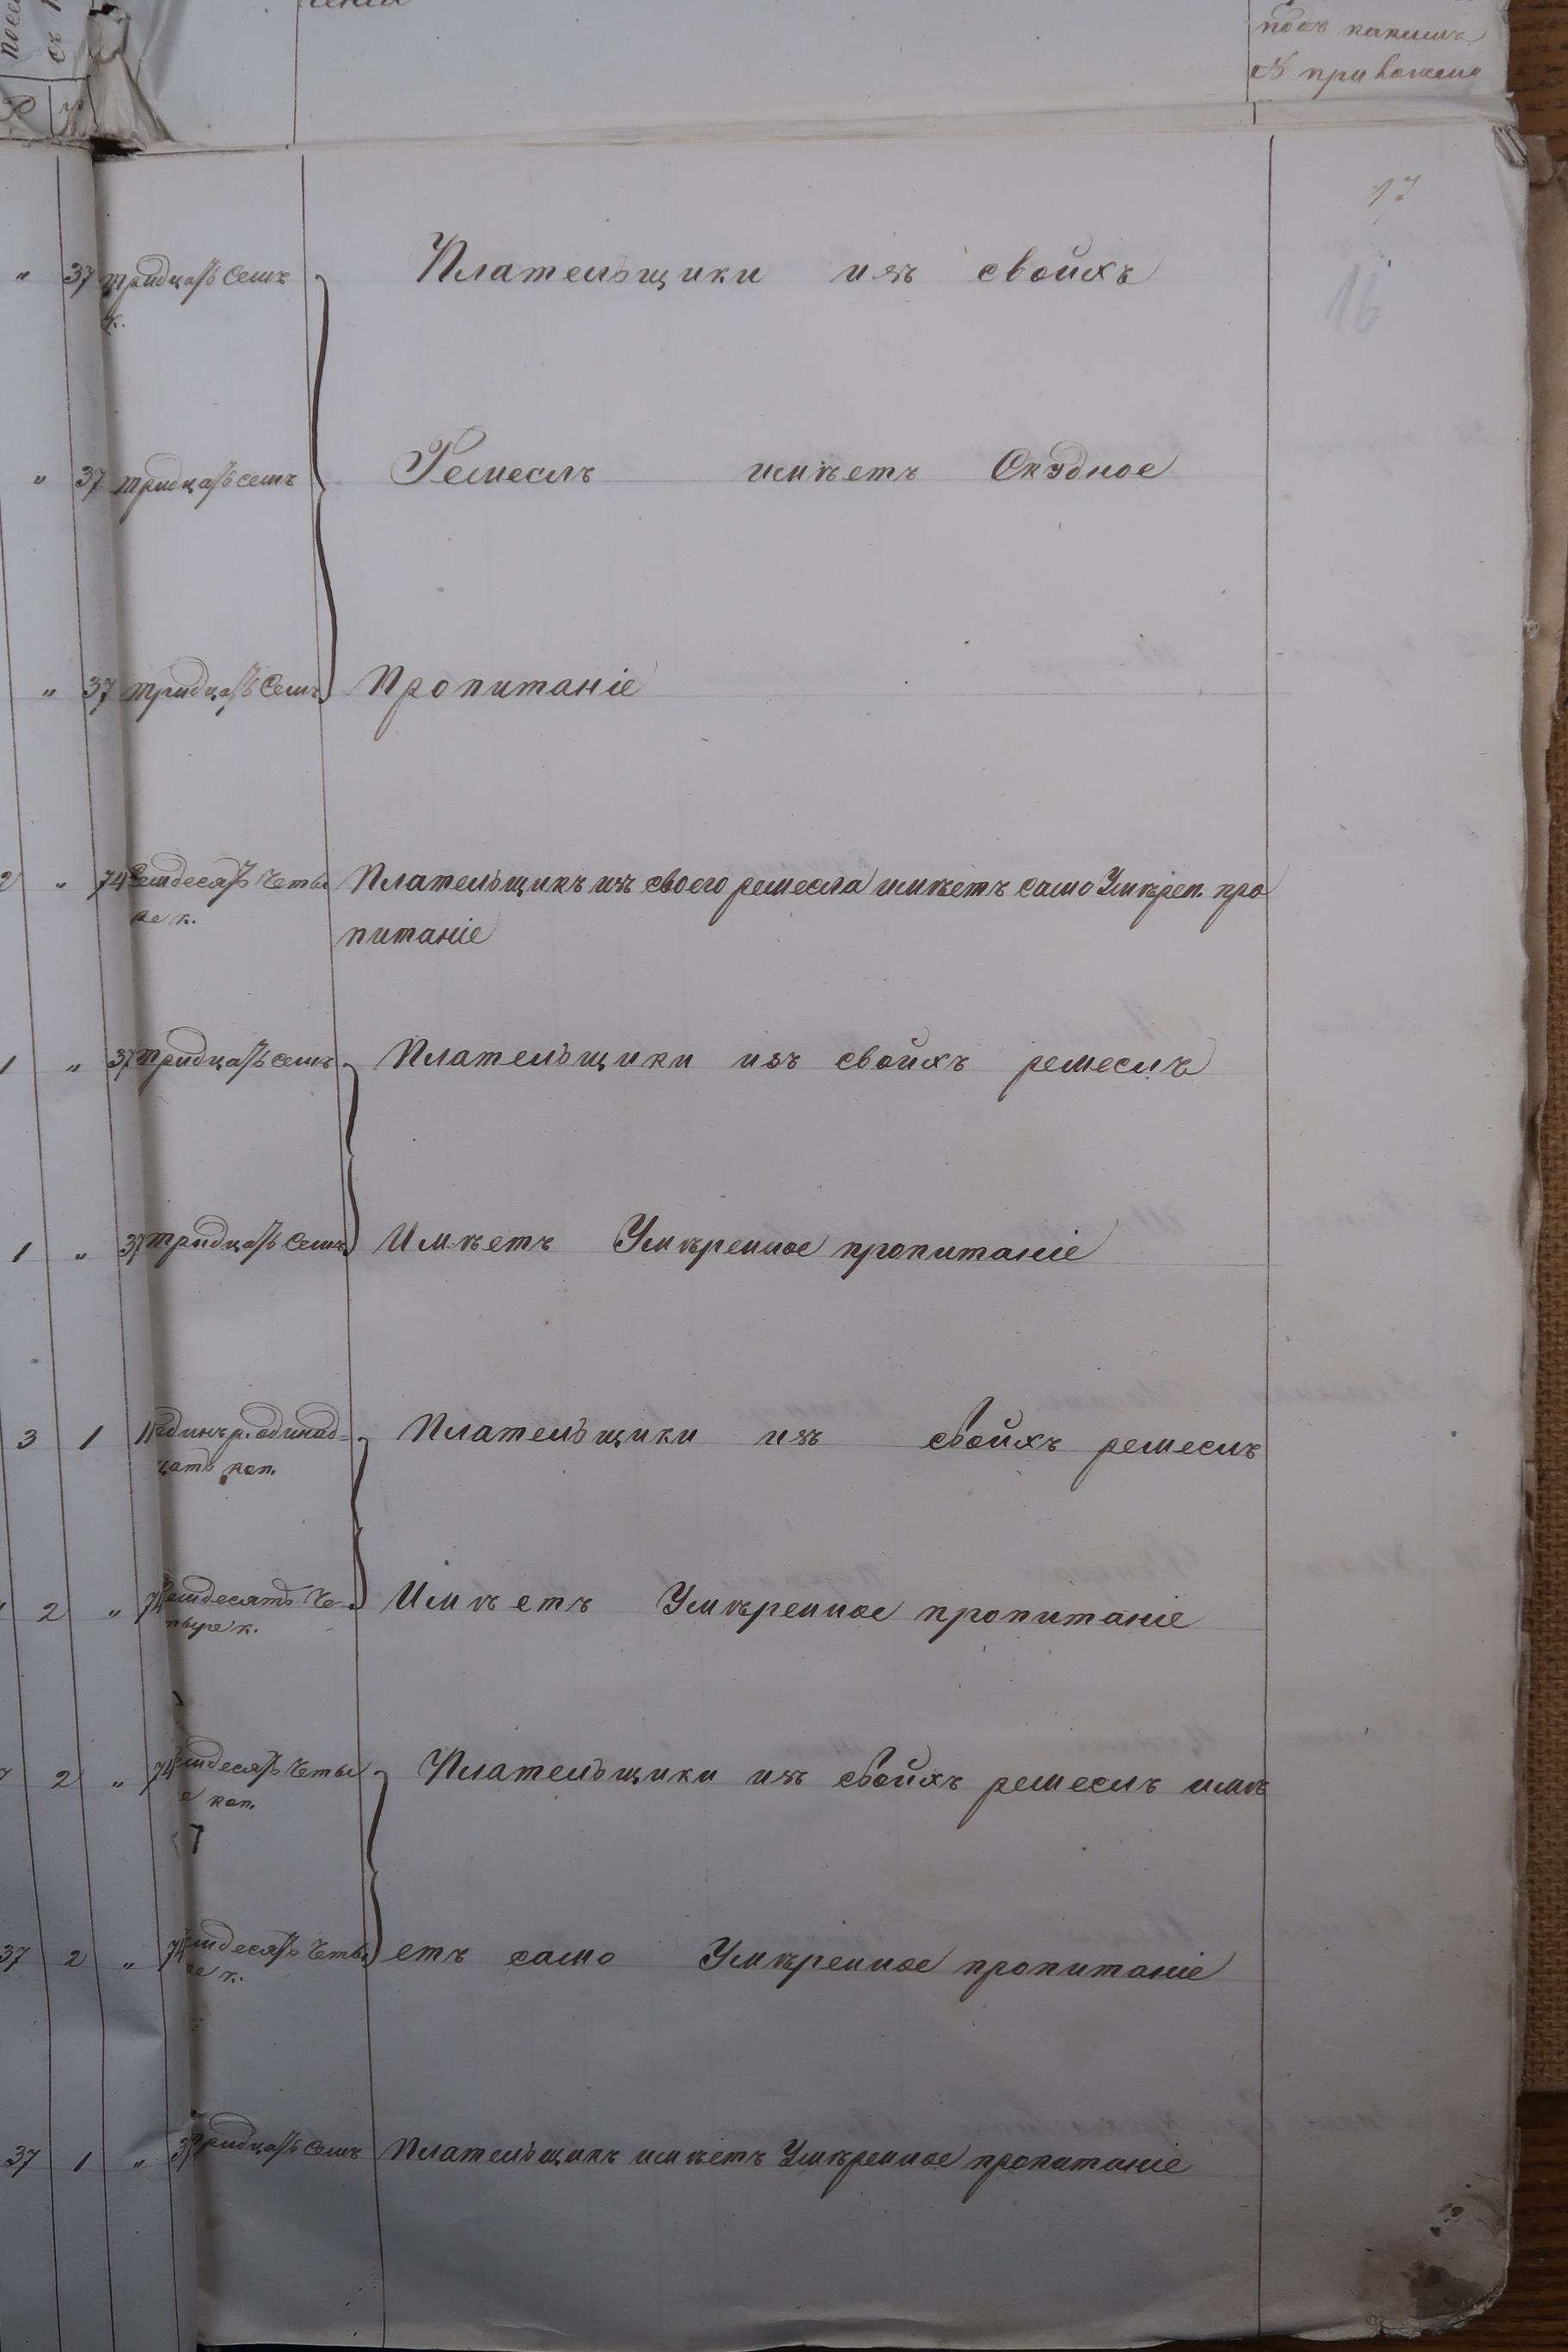 подъ какимъ
№ приложено
17
16
" 37 тридцать семъ Плательщики изъ свойхъ
к.
" 37 тридцать семъ Ремеслъ имѣетъ Скудное
" 37 тридцать Семъ Пропитаніе
2 " 74 Семдесять Четы Плательщикъ изъ своего ремесла имѣетъ само Умѣрен. про
ре к. питаніе
1 " 37 тридцать семъ Плательщики изъ свойхъ ремеслъ
1 " 37 тридцать Семъ Имѣетъ Умѣренное пропитаніе
3 1 11 Единъ р. одинад= Плательщики изъ свойхъ ремеслъ
цать коп.
2 " 74 Семдесятъ Че- Имѣетъ Умѣренное пропитаніе
тыре к.
2 " 74 Семдесять Четы Плательщики изъ свойхъ ремеслъ имѣ
е коп.
37 2 " 74 Семдесять Четы етъ само Умѣренное пропитаніе
ре к.
37 1 " 37 тридцать Семъ Плательщикъ имѣетъ Умѣренное пропитаніе